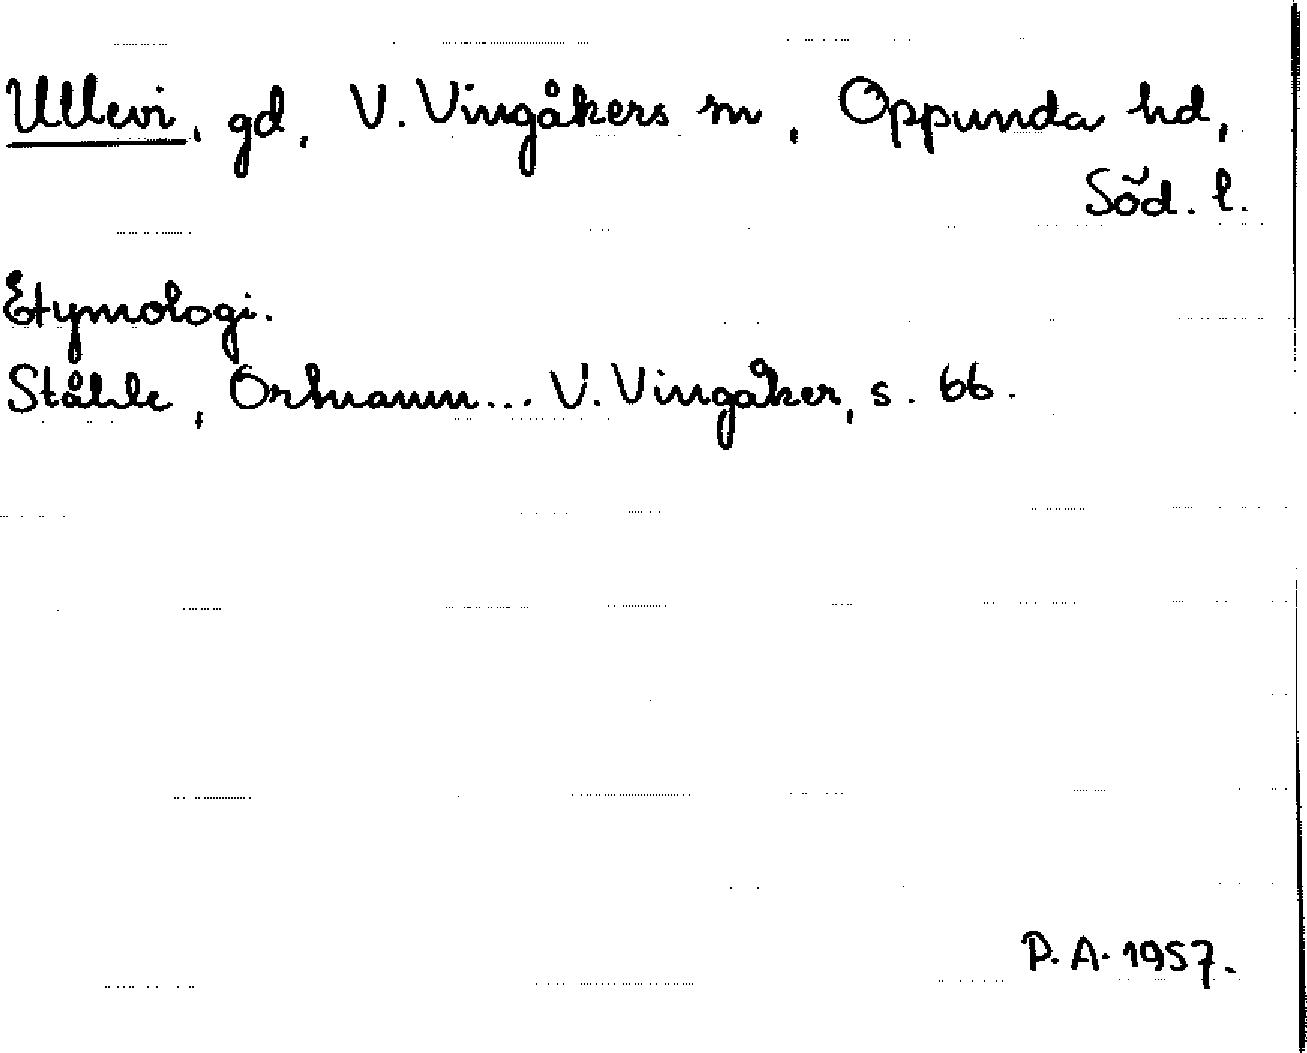 Ullevi, gd, V. Vingåkers sn, Oppunda hd,
Söd. l.
Etymologi.
Ståhle, Ortnamn... V. Vingåker, s. 66.
P.A. 1957.